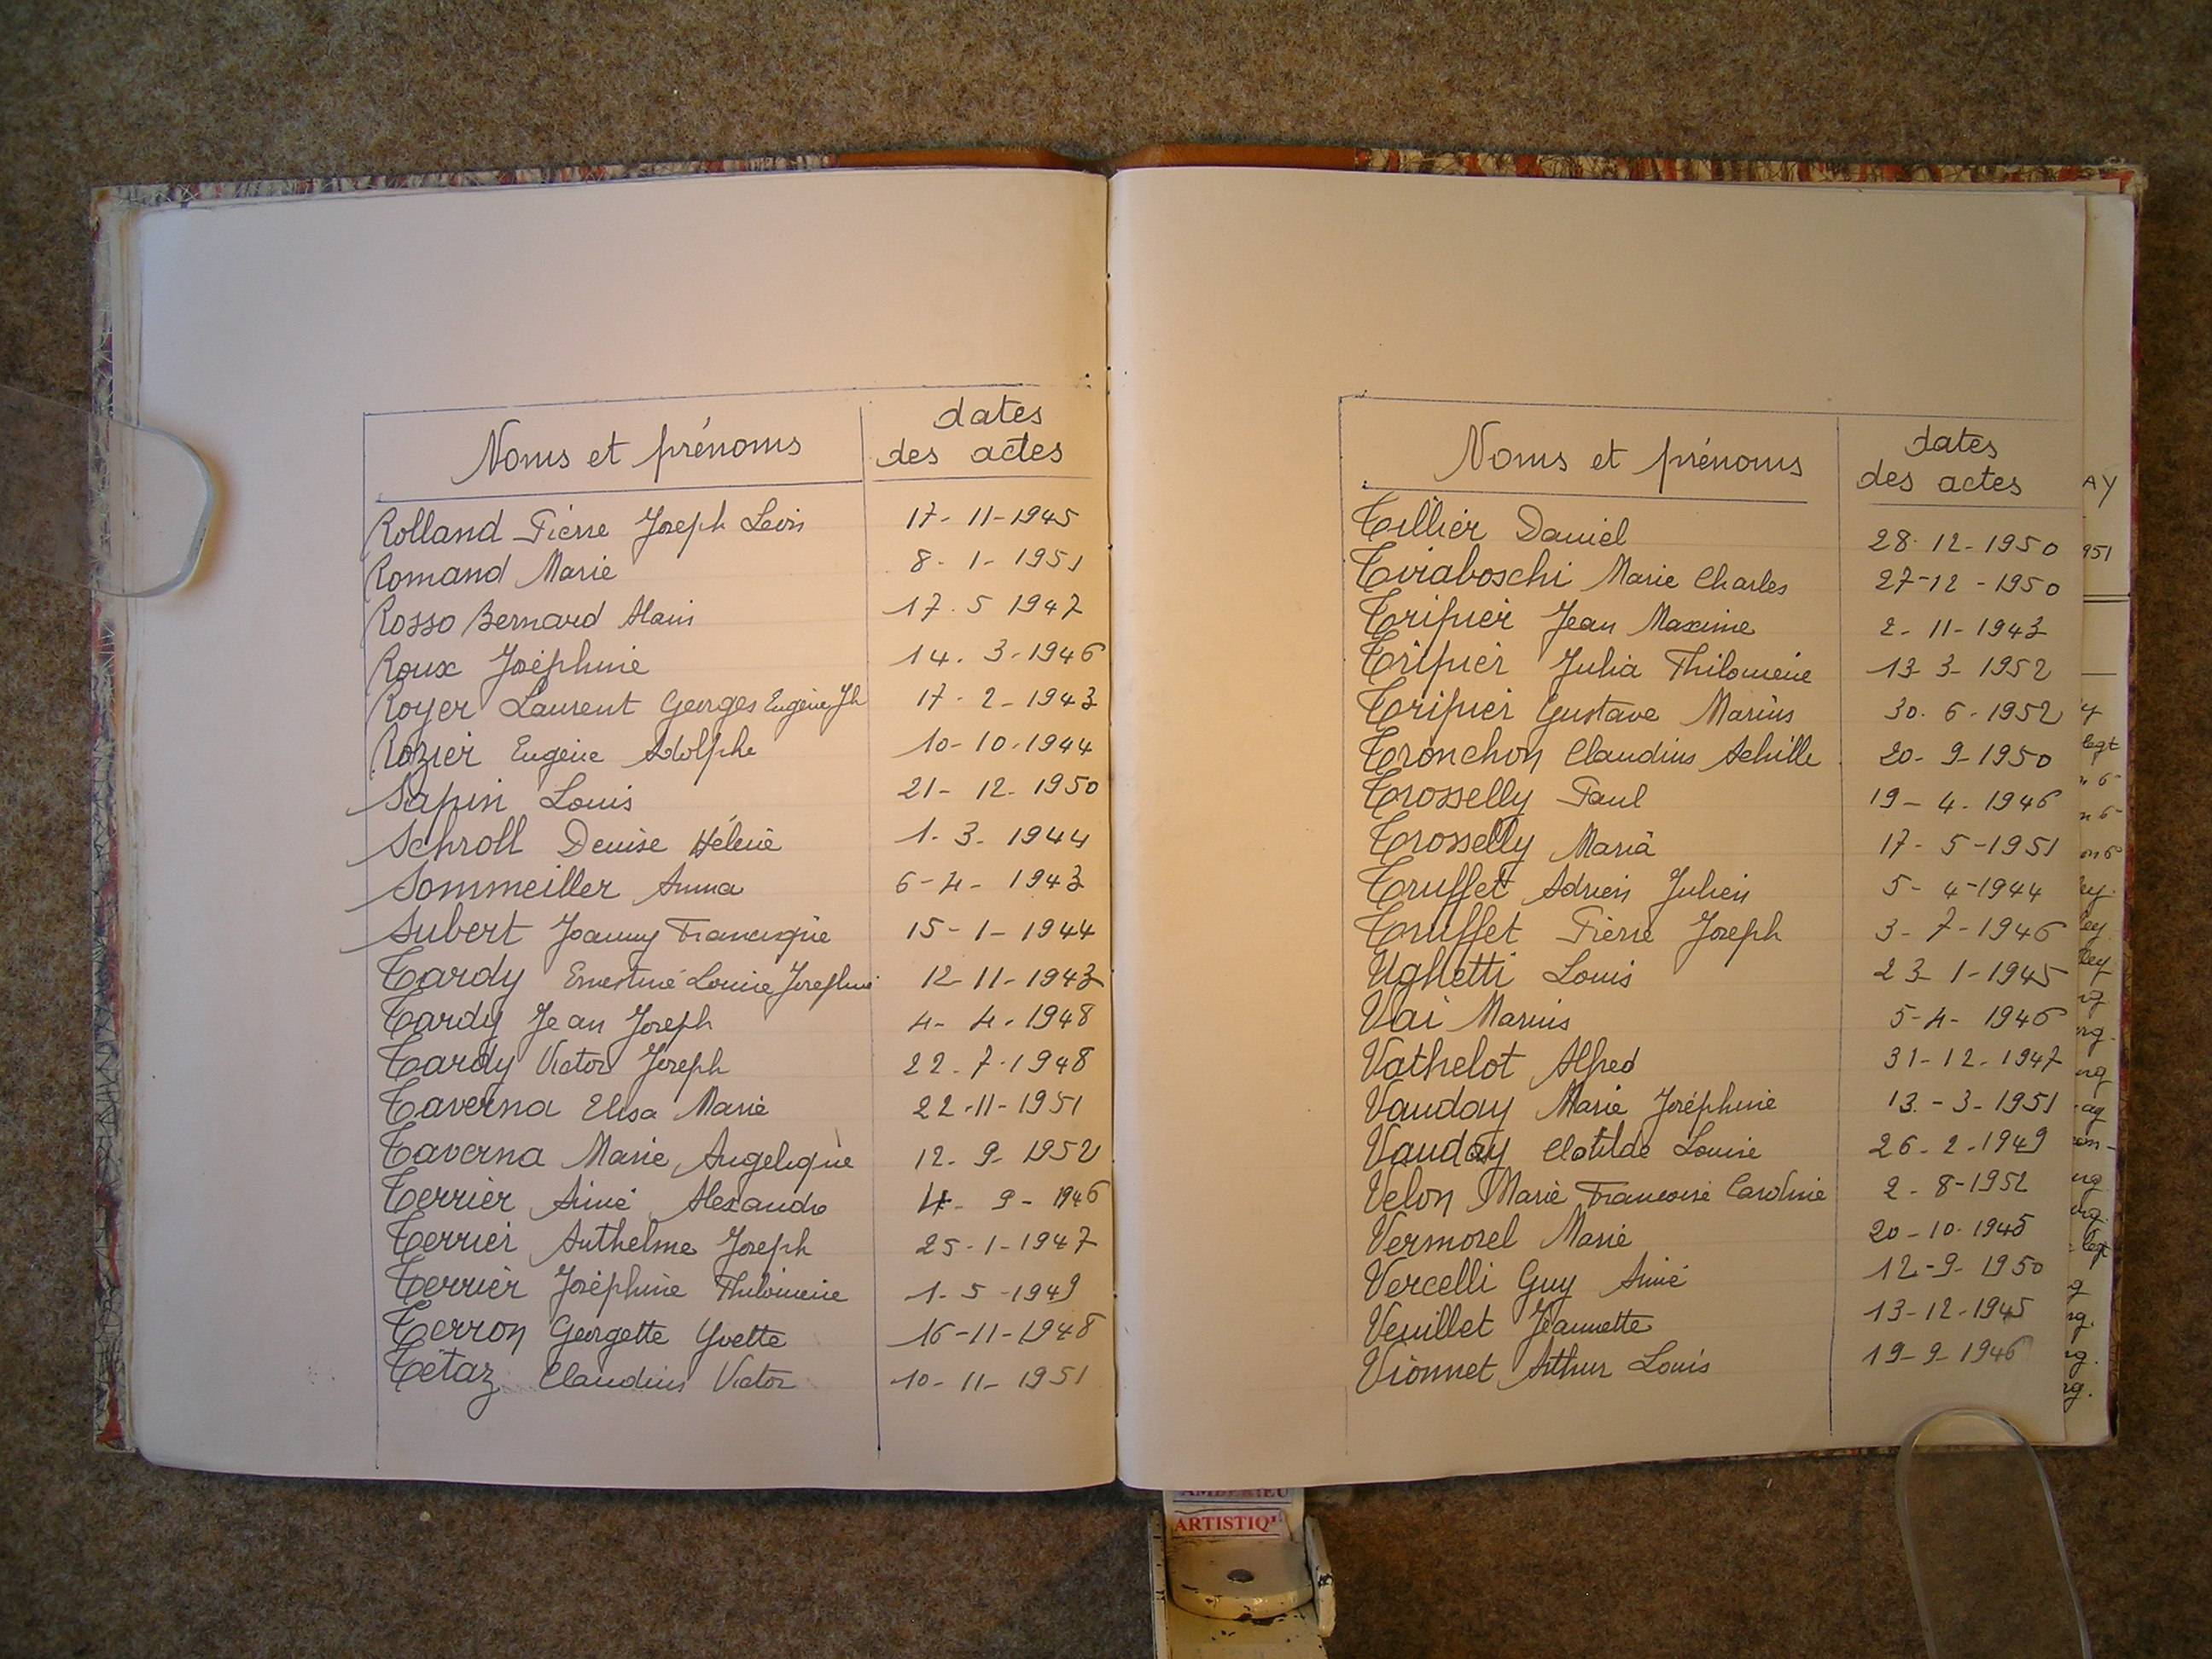 Noms et prénoms dates des actes
Rolland Pierre Joseph Louis 17-11-1945
Romand Marie 8-1-1951
Rosso Bernard Alain 17.5 1947
Roux Joséphine 14.3-1946
Royer Laurent Georges Eugène Jh 17-2-1943
Rozier Eugène Adolphe 10-10-1944
Sapin Louis 21-12-1950
Schroll Denise Hélène 1-3-1944
Sommeiller Anna 6-4-1943
Subert Joanny Francisque 15-1-1944
Tardy Ernestine Louise Josephine 12-11-1943
Tardy Jean Joseph 4-4-1948
Tardy Victor Joseph 22-7-1948
Taverna Elisa Marie 22-11-1951
Taverna Marie Angelique 12-9-1952
Terrier Aimé Alexandre 4-9-1946
Terrier Anthelme Joseph 25-1-1947
Terrier Joséphine Philomène 1-5-1949
Terron Georgette Yvette 16-11-1948
Tétaz Claudius Victor 10-11-1951
Noms et prénoms dates des actes
Tillier Daniel 28-12-1950
Tiraboschi Marie Charles 27-12-1950
Tripier Jean Maxime 2-11-1943
Tripier Julia Philomène 13-3-1952
Tripier Gustave Marius 30-6-1952
Tronchon Claudius Achille 20-9-1950
Trosselly Paul 19-4-1946
Trosselly Maria 17-5-1951
Truffet Adrien Julien 5-4-1944
Truffet Pierre Joseph 3-7-1946
Ughetti Louis 23-1-1945
Vai Marius 5-4-1946
Vathelot Alfred 31-12-1947
Vauday Marie Joséphine 13-3-1951
Vauday Clotilde Louise 26-2-1949
Velon Marie Francoise Caroline 2-8-1952
Vermorel Marie 20-10-1945
Vercelli Guy Aimé 12-9-1950
Veuillet Jeannette 13-12-1945
Vionnet Arthur Louis 19-9-1946
AY
951
legt
ARTISTIQ